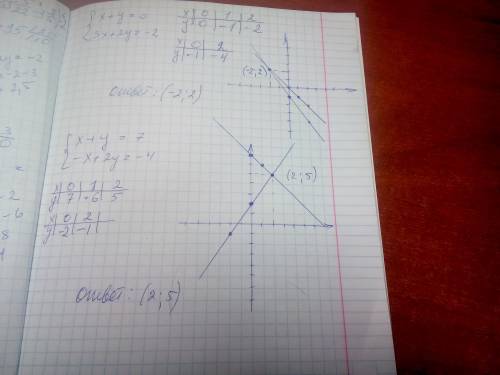 x+y=0
3x+2y=-2
x 0 1 2
y 0 -1 -2
x 0 2
y -1 -4
(-2;2)
ответ: (-2;2)
x+y=7
-x+2y=-4
x 0 1 2
y 7 6 5
x 0 2
y -2 -1
(2;5)
ответ: (2;5)
y=-2
-2-3
2,5
-2
-6
8